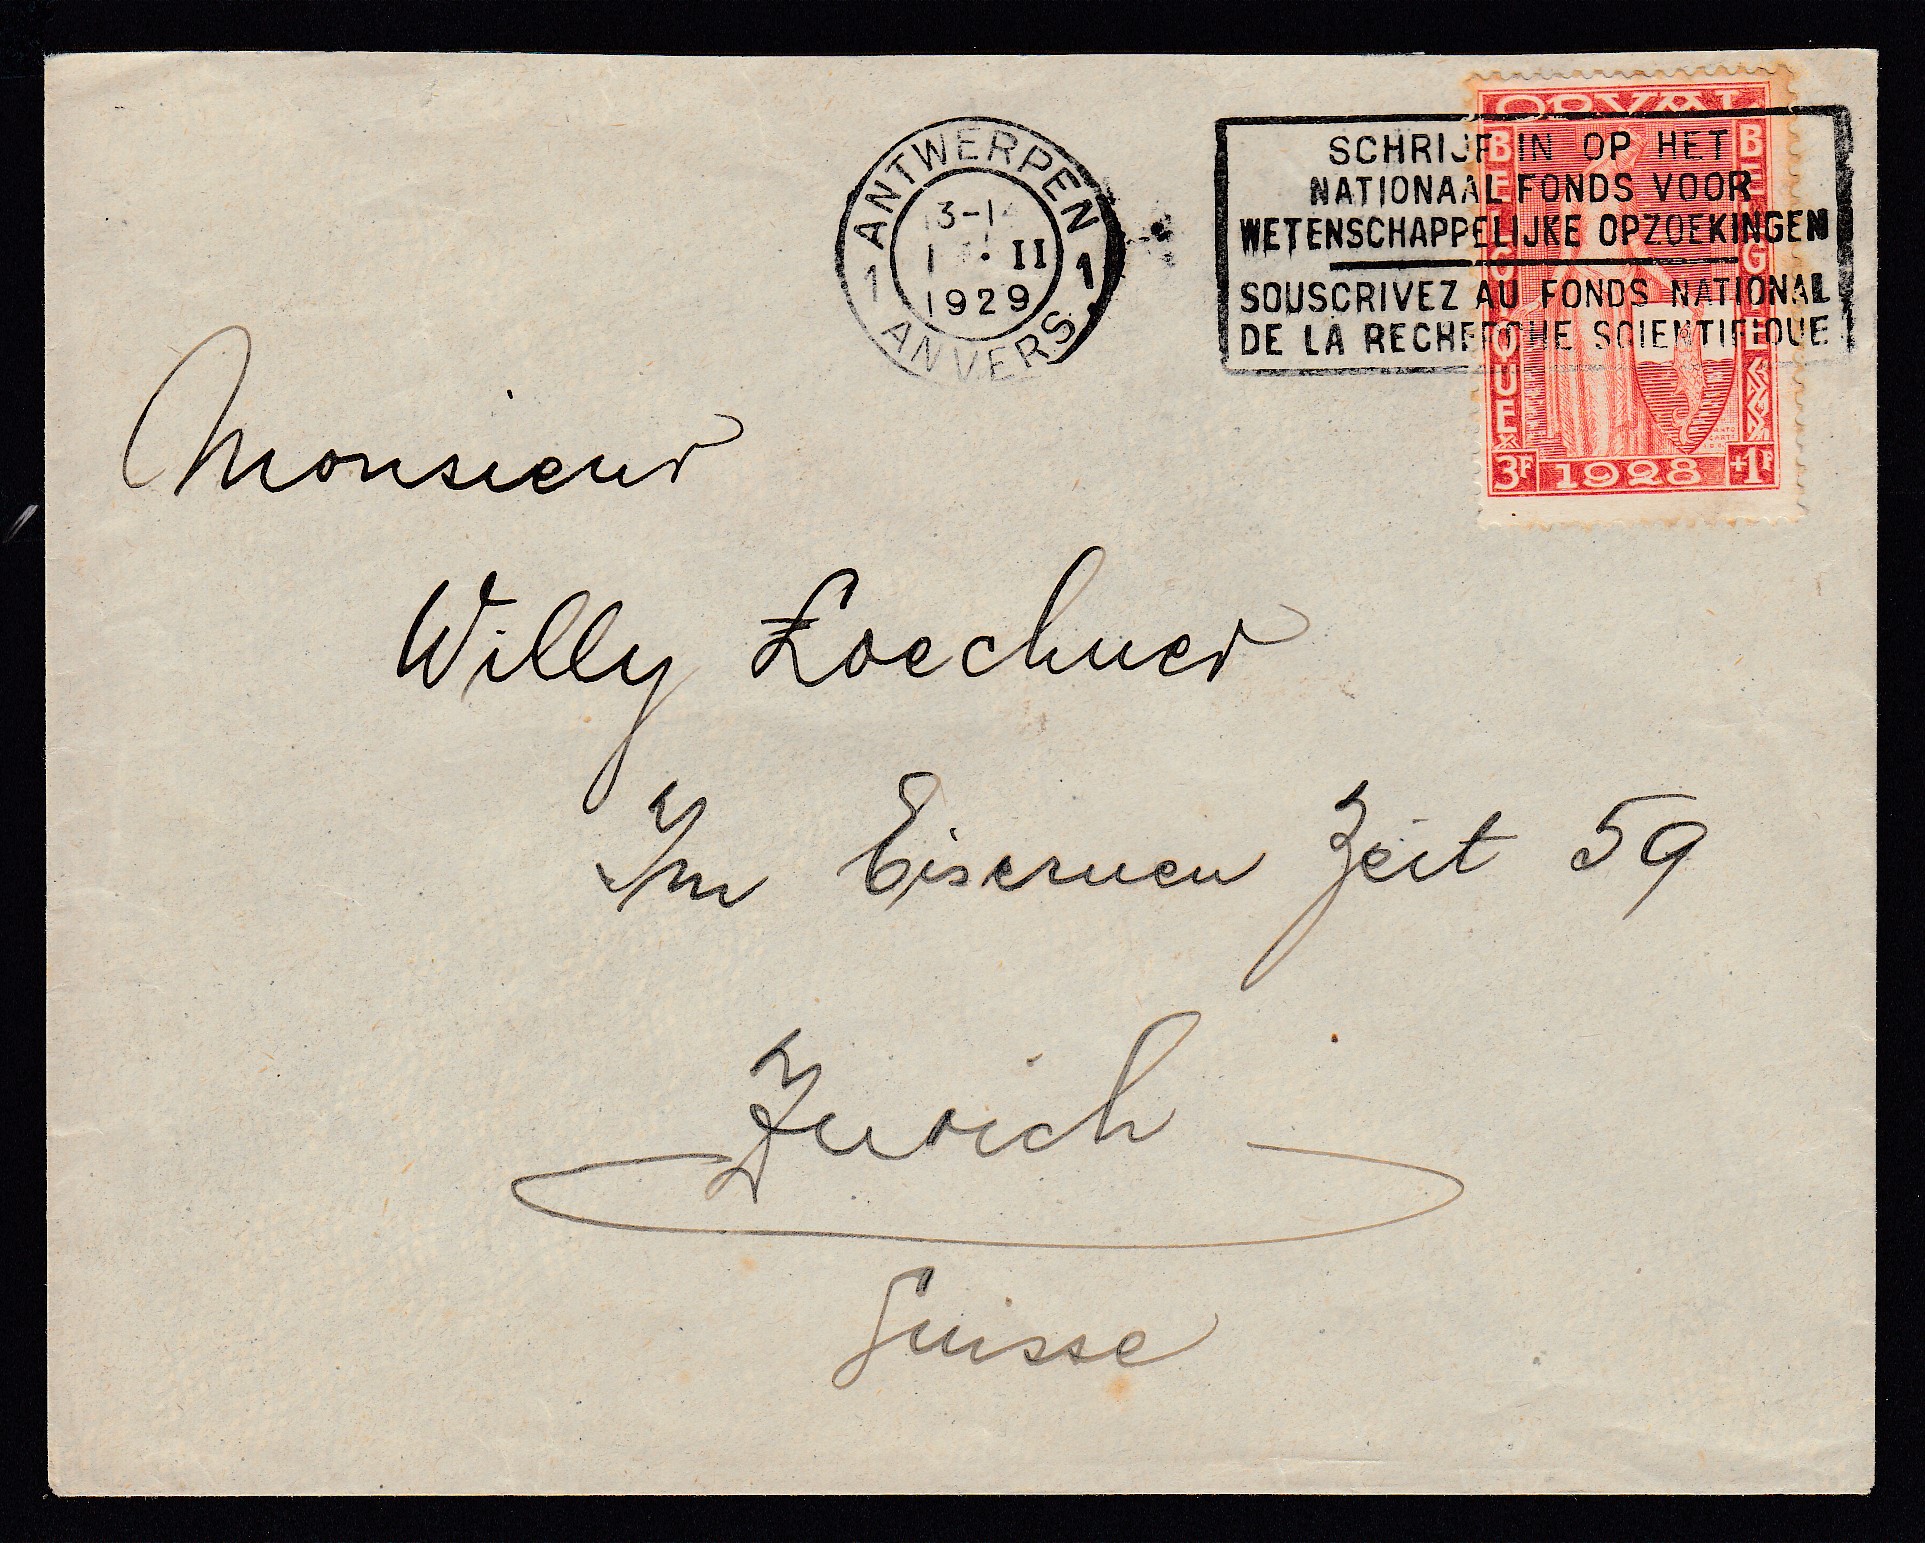 ANTWERPEN
13-14
1 · II
1929
1 1
ANVERS
SCHRIJF IN OP HET
NATIONAAL FONDS VOOR
WETENSCHAPPELIJKE OPZOEKINGEN
SOUSCRIVEZ AU FONDS NATIONAL
DE LA RECHERCHE SCIENTIFIQUE
ORVAL
BELGIQUE
BELGIE
3F 1928 +1F
Monsieur
Willy Loechner
Im Eisernen Zeit 59
Zurich
Suisse